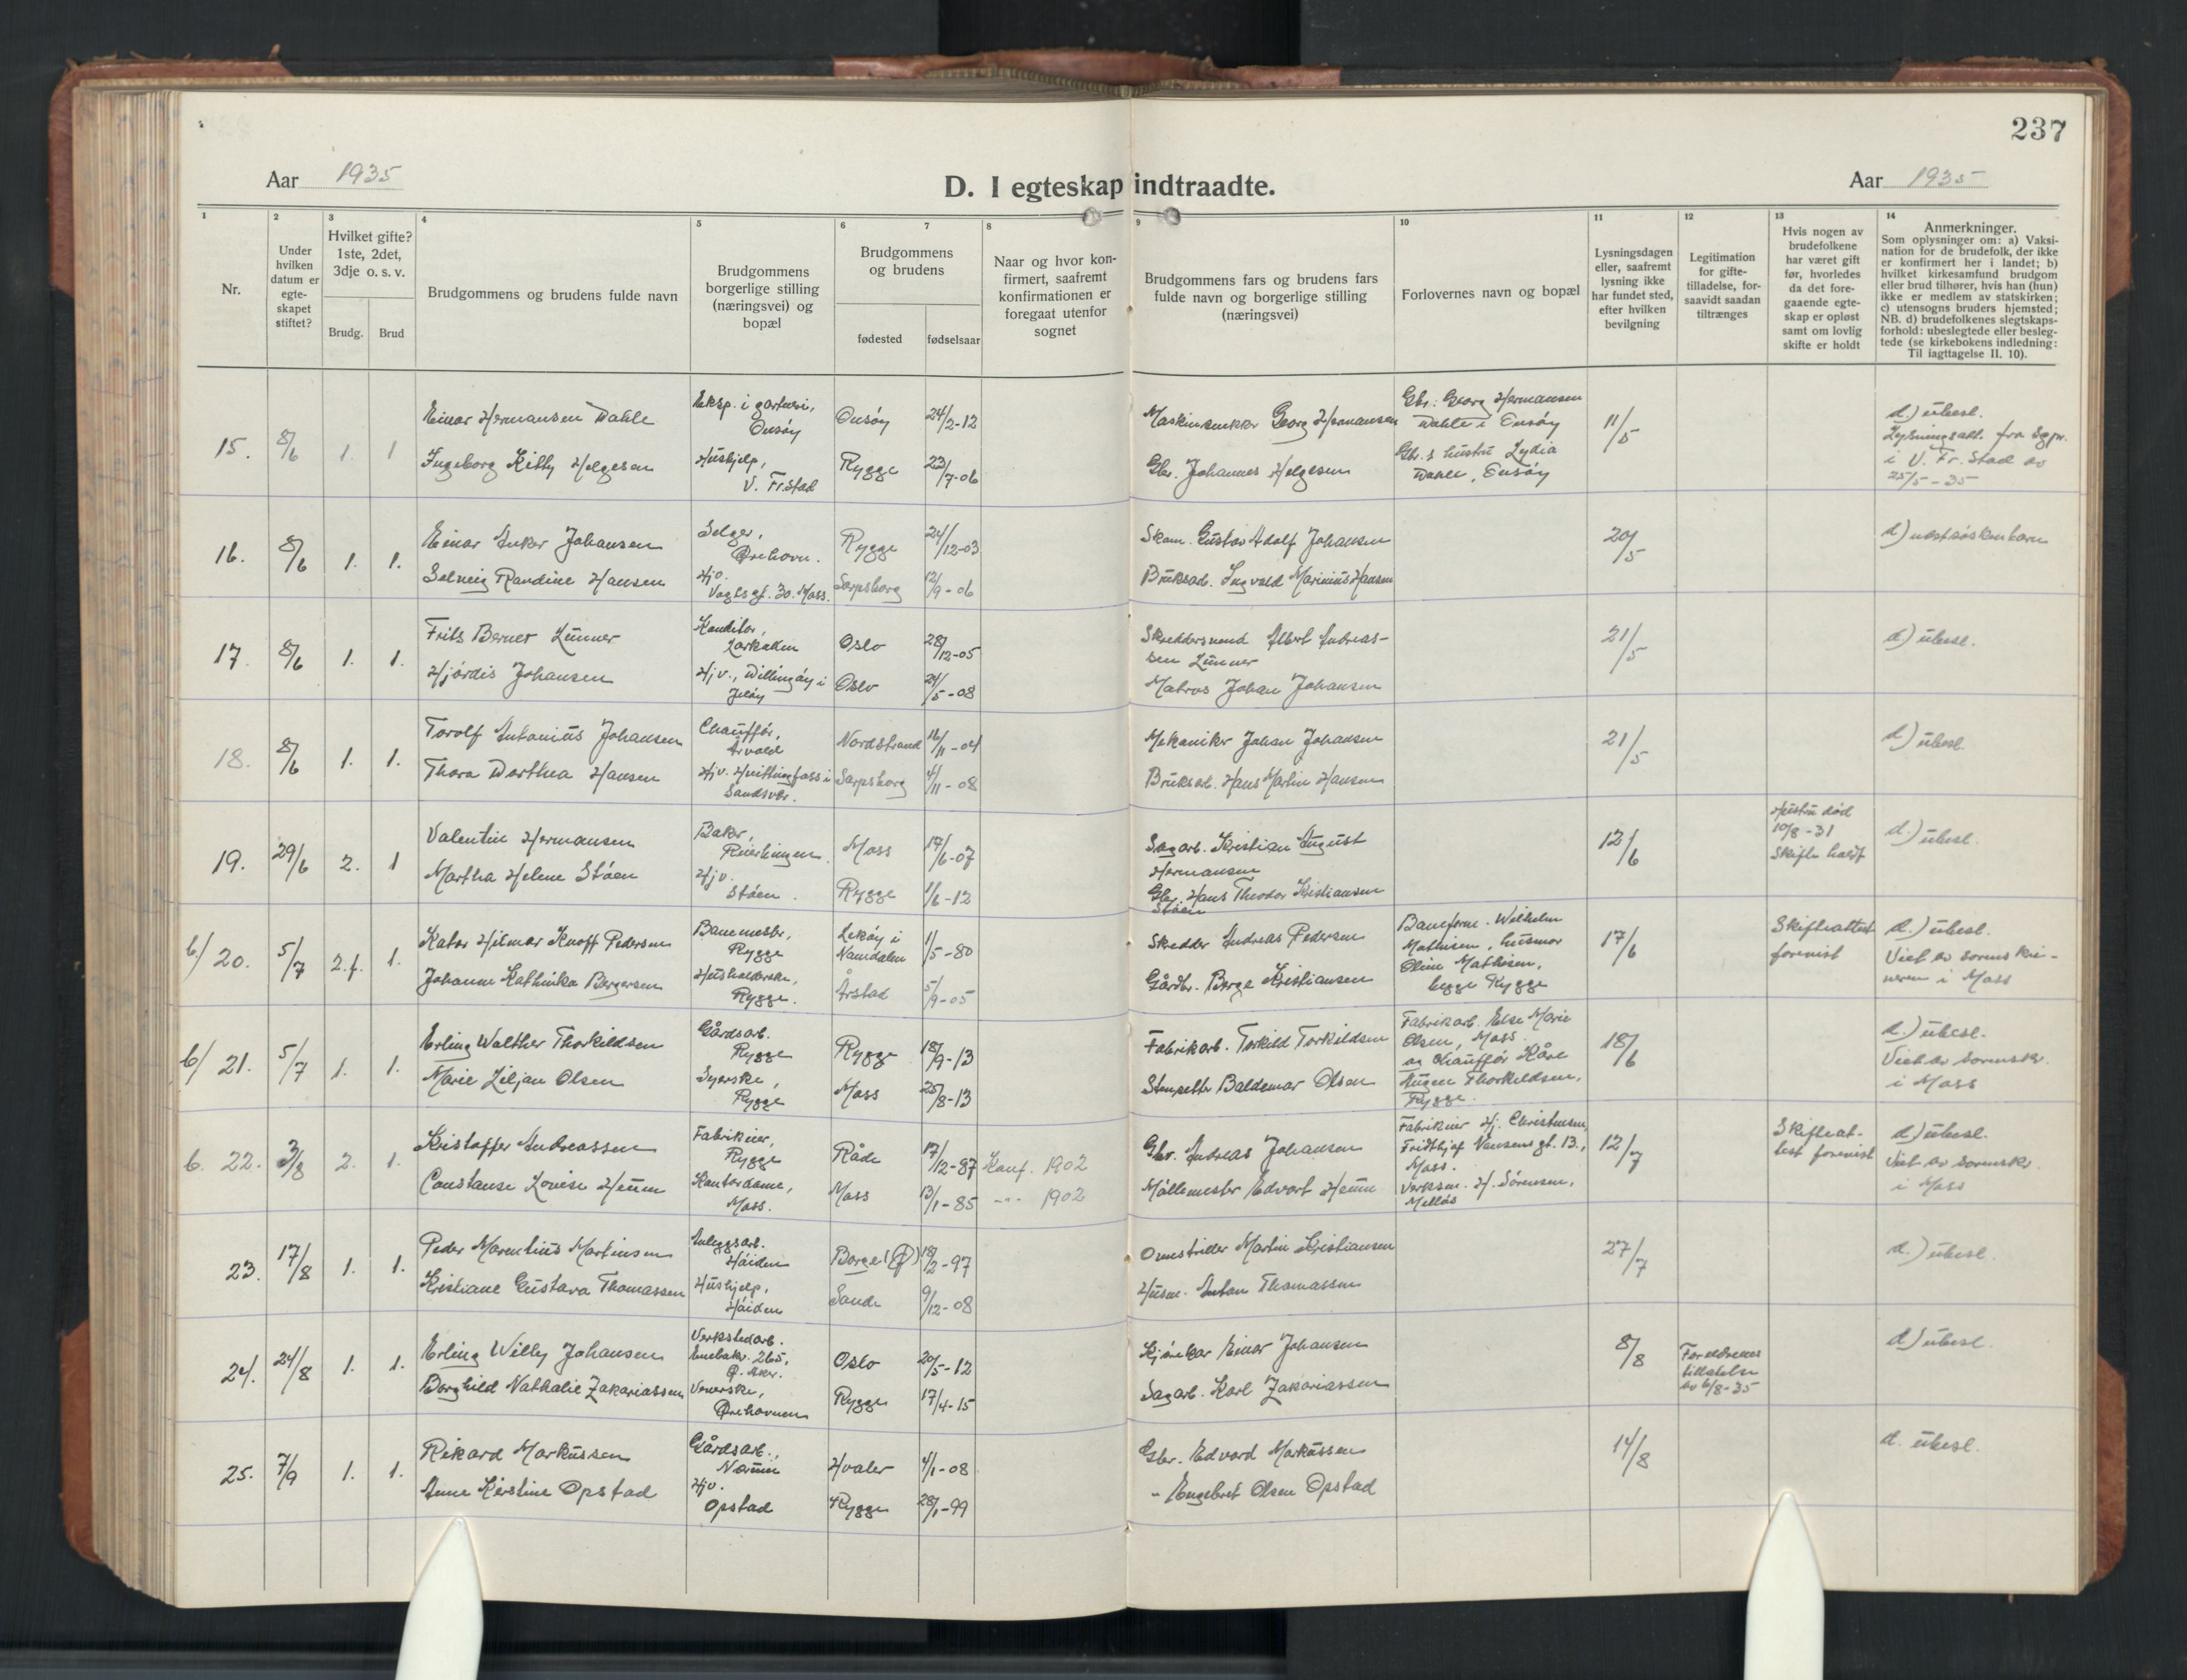 237
Aar 1935
D. I egteskap indtraadte.
Aar 1935
1
2
3
4
5
6
7
8
9
10
11
12
13
14
Nr.
Under
hvilken
datum er
egte-
skapet
stiftet?
Hvilket gifte?
1ste, 2det,
3dje o. s. v.
Brudg.
Brud
Brudgommens og brudens fulde navn
Brudgommens
borgerlige stilling
(næringsvei) og
bopæl
Brudgommens
og brudens
fødested
fødselsaar
Naar og hvor kon-
firmert, saafremt
konfirmationen er
foregaat utenfor
sognet
Brudgommens fars og brudens fars
fulde navn og borgerlige stilling
(næringsvei)
Forlovernes navn og bopæl
Lysningsdagen
eller, saafremt
lysning ikke
har fundet sted,
efter hvilken
bevilgning
Legitimation
for gifte-
tilladelse, for-
saavidt saadan
tiltrænges
Hvis nogen av
brudefolkene
har været gift
før, hvorledes
da det fore-
gaaende egte-
skap er opløst
samt om lovlig
skifte er holdt
Anmerkninger.
Som oplysninger om: a) Vaksi-
nation for de brudefolk, der ikke
er konfirmert her i landet; b)
hvilket kirkesamfund brudgom
eller brud tilhører, hvis han (hun)
ikke er medlem av statskirken;
c) utensogns bruders hjemsted;
NB. d) brudefolkenes slegtskaps-
forhold: ubeslegtede eller besleg-
tede (se kirkebokens indledning:
Til iagttagelse II. 10).
15. 8/6 1. 1
Einar Hermansen Dahle
Eksp. i gartneri,
Onsøy
Onsøy 24/2-12
Ingeborg Kitty Helgesen
Hushjelp,
V. Fr.stad
Rygge 23/7-06
Georg Hermansen
Gbr. Johannes Helgesen
Gbr. Georg Hermansen
Dahle i Onsøy
Gbr.s hustru Lydia
Dahle, Onsøy
11/5
d.) ubesl.
Lysningsatt. fra Sgpr.
i V. Fr.stad av
25/5-35
16. 8/6 1. 1.
Einar Anker Johansen
Selger,
Ørehavn.
Rygge 24/12-03
Solveig Randine Hansen
Hjv.
Vogtsgt. 30. Moss.
Sarpsborg 12/9-06
Skom. Gustav Adolf Johansen
Bruksarb. Ingvald Marinius Hansen
20/5
d) nestsøskenbarn
17. 8/6 1. 1.
Frits Berner Lunner
Konditor,
Larkollen
Oslo 28/12-05
Hjørdis Johansen
Hjv., Dillingøy i
Jeløy
Oslo 24/5-08
Skreddersvend Albert Andreas-
sen Lunner
Matros Johan Johansen
21/5
d.) ubesl.
18. 8/6 1. 1.
Torolf Antonius Johansen
Chauffør,
Årvold
Nordstrand 16/11-04
Thora Dorthea Hansen
Hjv. Hvittingfoss i
Sandsvær.
Sarpsborg 4/11-08
Mekaniker Johan Johansen
Bruksarb. Hans Martin Hansen
21/5
d) ubesl.
19. 29/6 2. 1
Valentin Hermansen
Baker,
Moss 17/6-07
Martha Helene Støen
Hjv.
Støen.
Rygge 1/6-12
Sagarb. Kristian August
Hermansen
Gbr. Hans Theodor Kristiansen
Støen
12/6
Hustru død
10/8-31
Skifte holdt
d.) ubesl.
b/ 20. 5/7 2.f. 1.
Kator Hilmar Knoff Pedersen
Banemestr,
Rygge
Lekøy i
Namdalen
1/5-80
Johanne Kathinka Bergersen
Husholderske,
Rygge.
Årstad 5/9-05
Skredder Andreas Pedersen
Gårdbr. Berge Kristiansen
Baneform. Wilhelm
Mathisen, husmor
Oline Mathisen,
begge Rygge
17/6
Skifteattest
forevist
d.) ubesl.
Viet av sorenskri-
veren i Moss
b/ 21. 5/7 1. 1.
Erling Walther Thorkildsen
Gårdsarb.
Rygge
Rygge 18/9-13
Marie Liljan Olsen
Syerske,
Rygge
Moss 25/8-13
Fabrikarb. Torkild Torkildsen
Stensetter Baldemar Olsen
Fabrikarb. Else Marie
Olsen, Moss.
og chauffør Kåre
Mugen Thorkildsen,
Rygge.
18/6
d.) ubesl.
Viet av sorenskr.
i Moss
b. 22. 3/8 2. 1.
Kristoffer Andreassen
Fabrikeier,
Rygge
Råde 17/12-87
Konf. 1902
Constanse Lovise Heum
Kontordame,
Moss.
Moss 13/1-85
-"- 1902
Gbr. Andreas Johansen
Møllemester Edvart Heum
Fabrikeier Hj. Christensen,
Fridthjof Nansens gt. 13.,
Moss.
Verksm. H. Sørensen,
Melløs
12/7
Skifteat-
test forevist
d.) ubesl.
Viet av sorenskr.
i Moss
23. 17/8 1. 1.
Peder Marentius Martinsen
Anleggsarb.
Høiden
Borge 18/2-97
Kristiane Gustava Thomassen
Hushjelp,
Høiden
Sande 9/12-08
Martin Kristiansen
Husm. Anton Thomassen
27/7
d.) ubesl.
24. 24/8 1. 1.
Erling Willy Johansen
Verkstedarb.
Enebakv. 265,
Ø. Aker.
Oslo 20/5-12
Borghild Nathalie Zakariassen
Veverske,
Ørehavnen
Rygge 17/4-15
Kjørekar Einar Johansen
Sagarb. Karl Zakariassen
8/8
Foreldrenes
tillatelse
av 6/8-35
d) ubesl.
25. 7/9 1. 1.
Rikard Markussen
Gårdsarb.,
Hvaler 4/1-08
Anne Kirstine Opstad
Hjv.
Opstad
Rygge 28/1-99
Gbr. Edvard Markussen
" Engebret Olsen Opstad
14/8
d. ubesl.